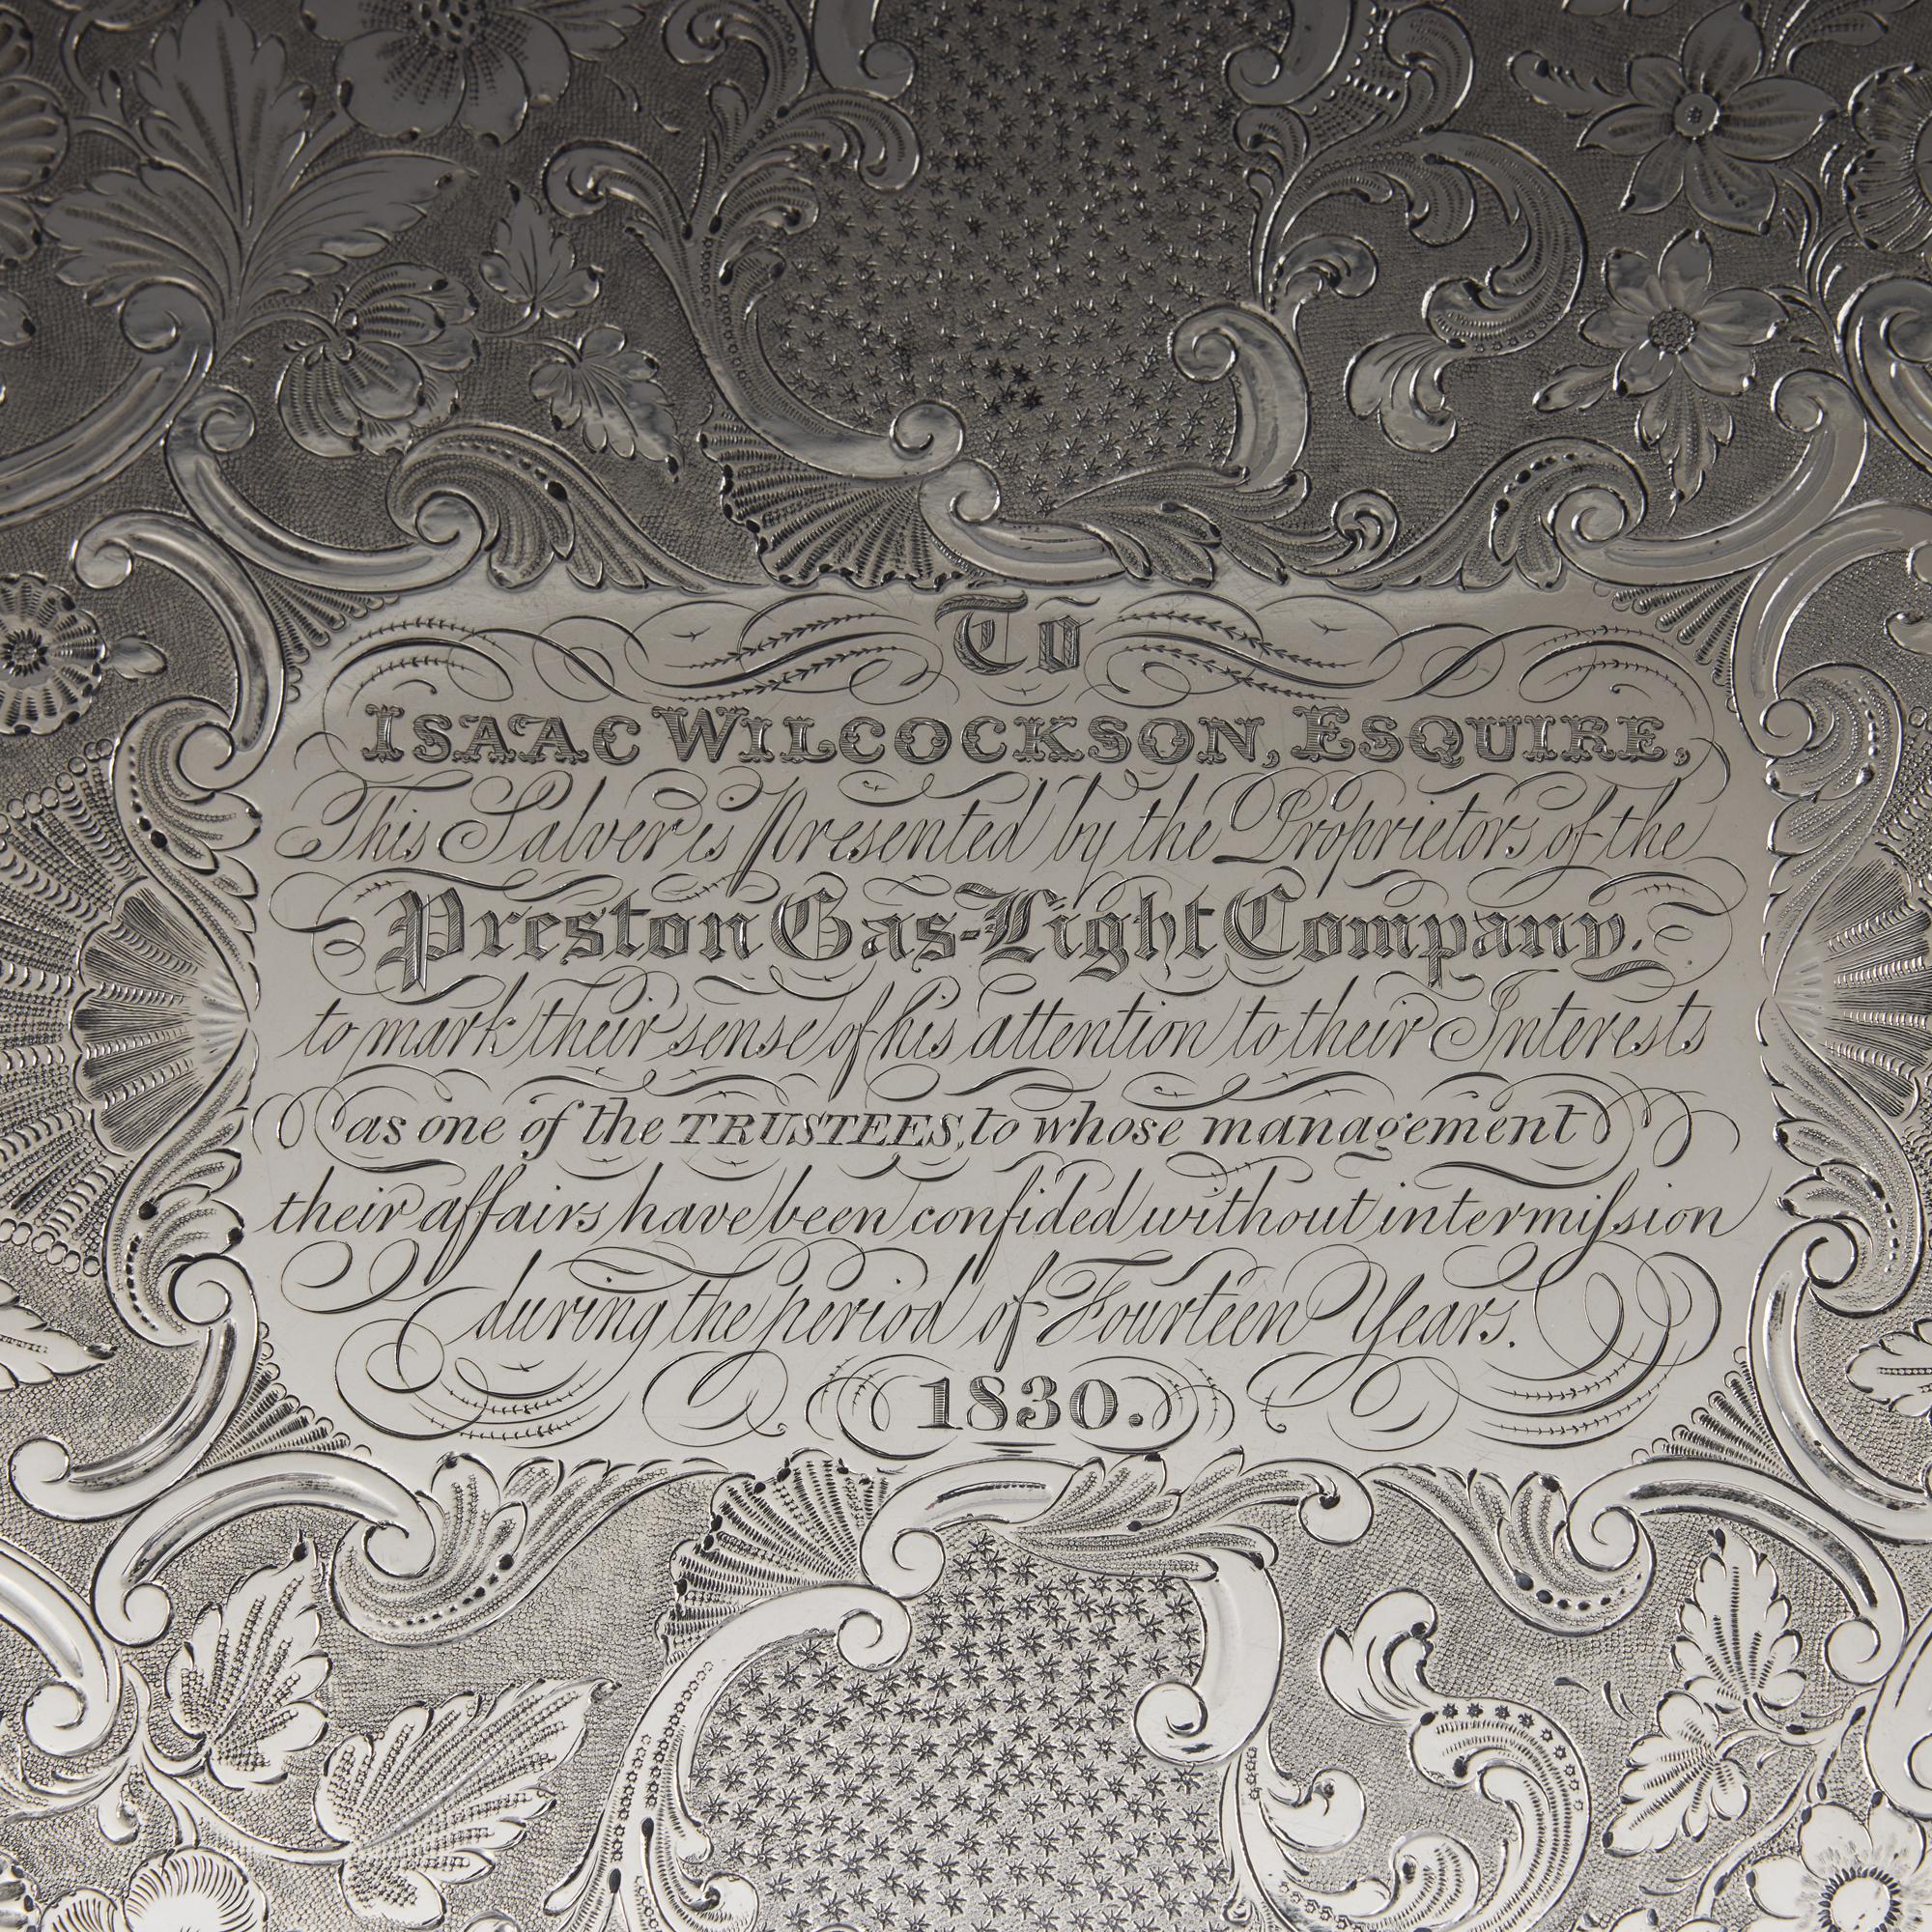 To
ISAAC WILCOCKSON, ESQUIRE,
This Salver is presented by the Proprietors of the
Preston Gas-Light Company.
to mark their sense of his attention to their Interests
as one of the TRUSTEES, to whose management
their affairs have been confided without intermiſsion
during the period of Fourteen Years.
1830.